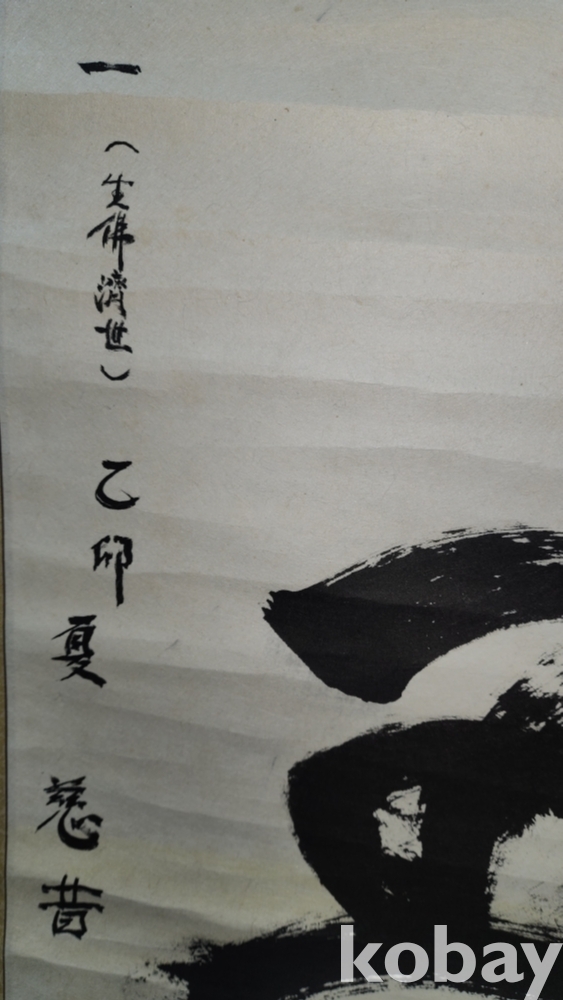 一（生佛濟世）乙卯夏 慈昔
kobay